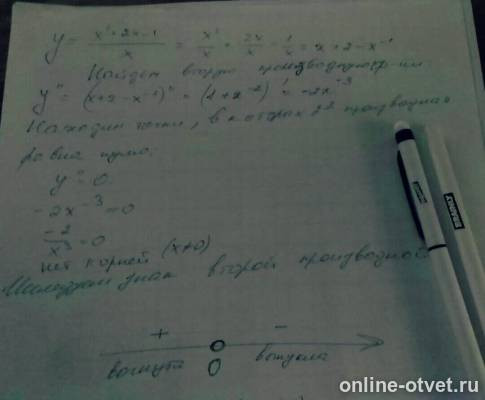 y = \frac{x²+2x-1}{x} = \frac{x²}{x} + \frac{2x}{x} - \frac{1}{x} = x + 2 - x^{-1}
Найдем вторую производную ф-ии.
y'' = (x+2-x^{-1})'' = (1+x^{-2})' = -2x^{-3}
Находим точки, в которых 2я производная
равна нулю.
y'' = 0.
-2x^{-3} = 0
\frac{-2}{x^3} = 0
нет корней (x≠0)
Исследуем знак второй производной.
+ -
вогнута 0 выпукла
online-otvet.ru